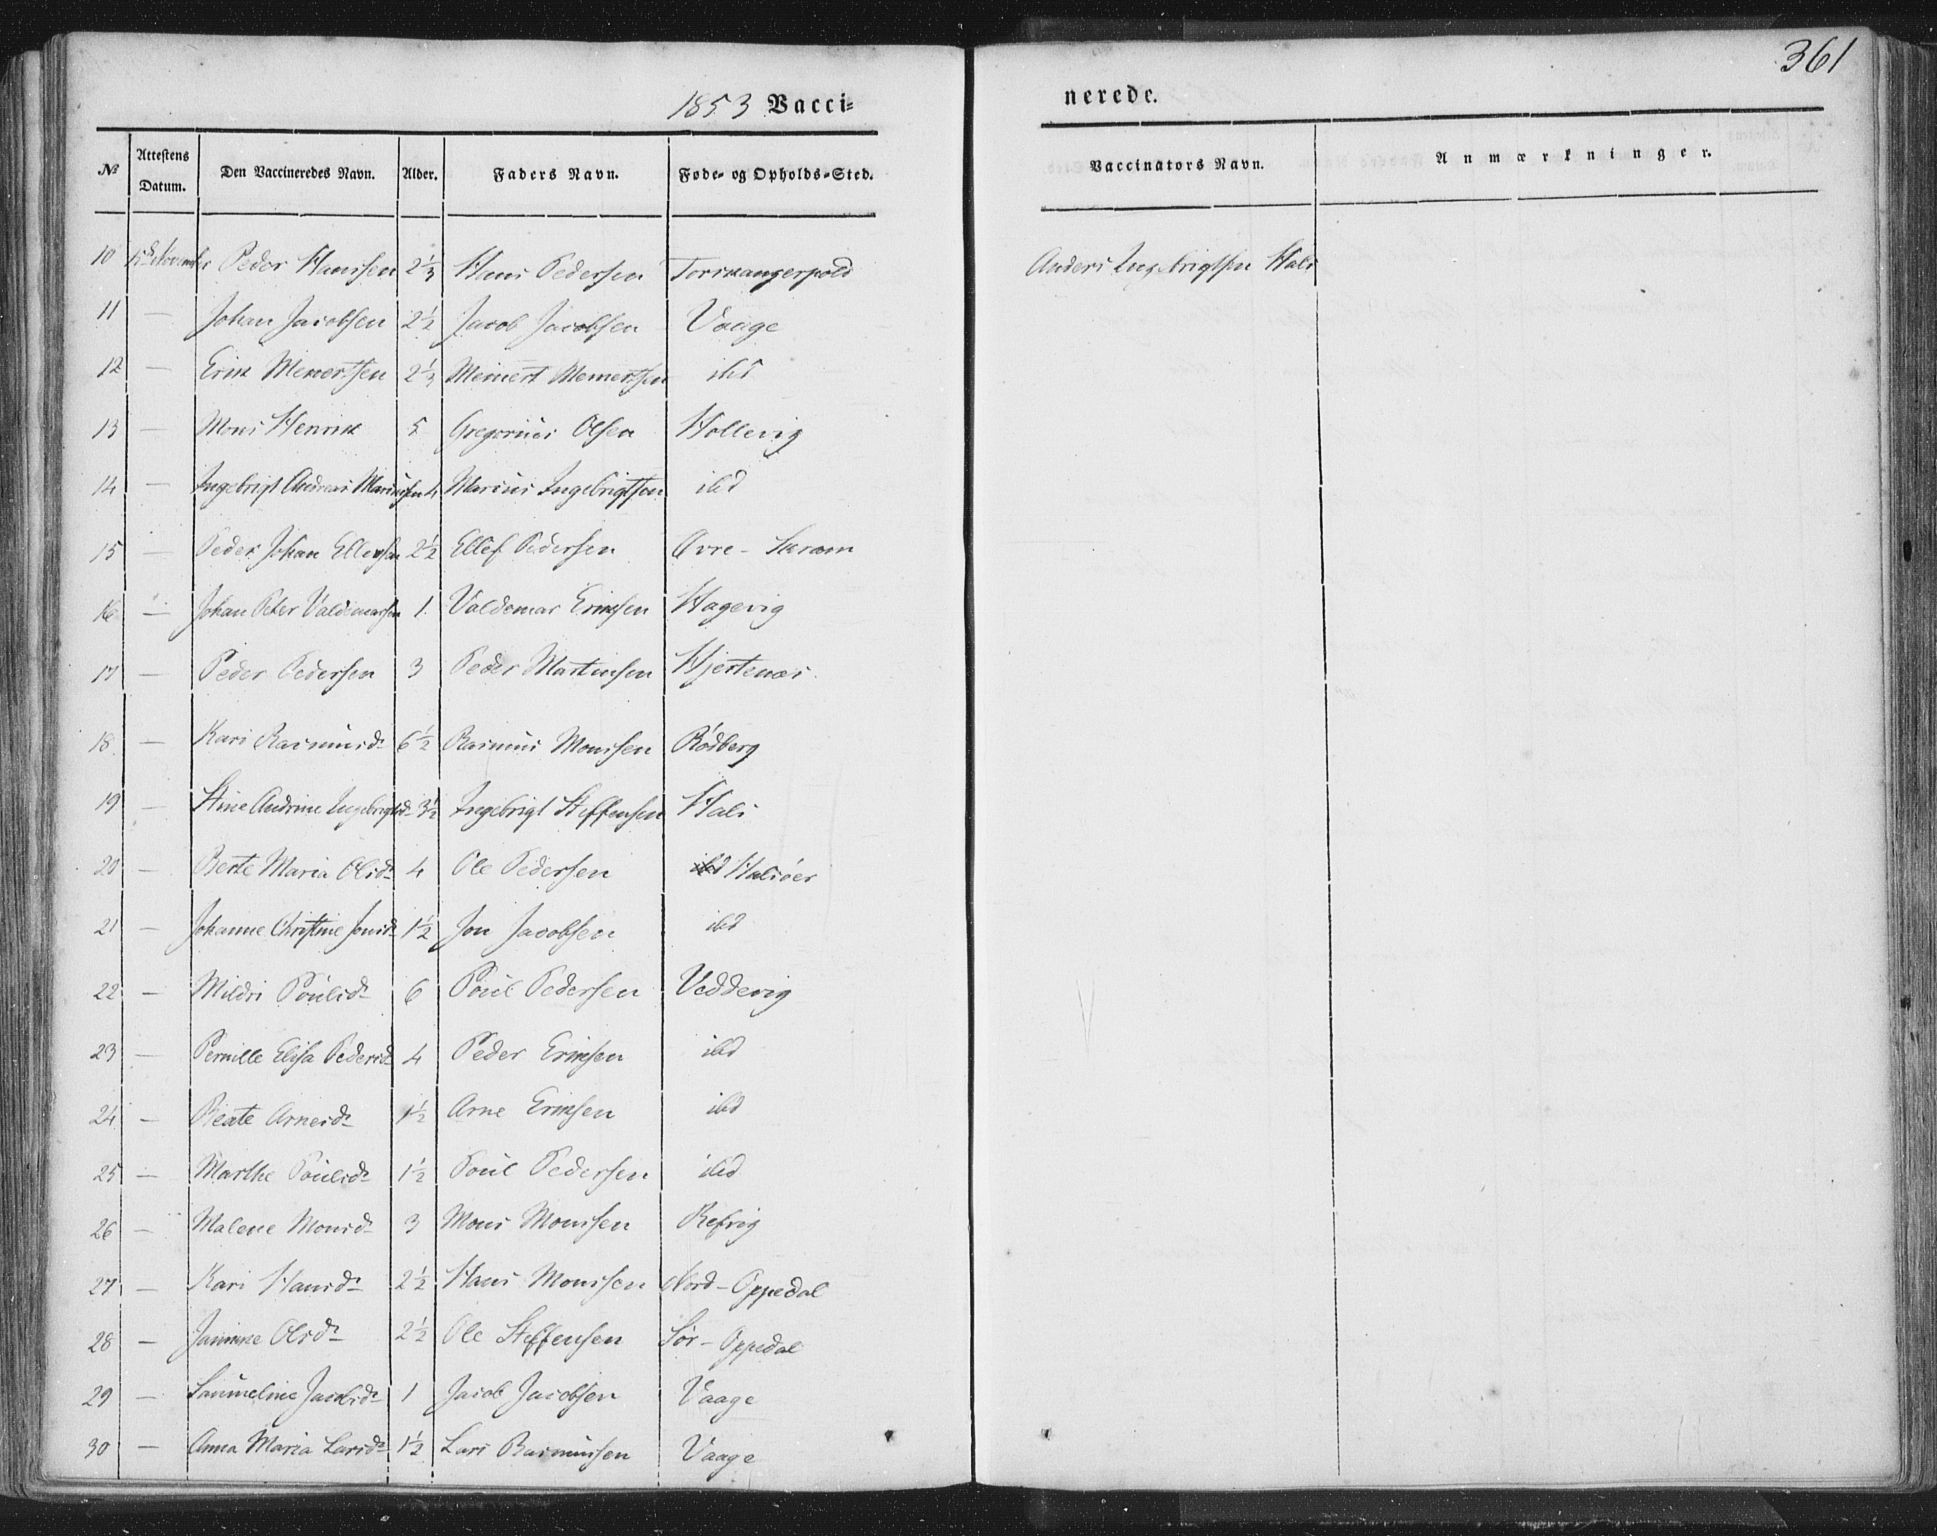 361
1853 Vacci= nerede.
№ Attestens Datum. Den Vaccineredes Navn. Alder. Faders Navn. Føde- og Opholds-Sted. Vaccinators Navn. Anmærkninger.
10 15de November Peder Hansen 2 1/3 Hans Pedersen Torskangerpold Anders Ingebrigtsen Hals
11 — Johan Jacobsen 2 1/2 Jacob Jacobsen Vaage
12 — Erik Meinertsen 2 1/3 Meinert Meinertsen ibd
13 — Mons Henrik 5 Gregorius Olsen Hollevig
14 — Ingebrigt Andreas Mariusen 4 Marius Ingebrigtsen ibd
15 — Peder Johan Ellefsen 2 1/2 Ellef Pedersen Øvre-Saram
16 — Johan Peter Valdemarsen 1 Valdemar Eriksen Hagevig
17 — Peder Pedersen 3 Peder Martinsen Hjertenæs
18 — Kari Rasmusd. 6 1/2 Rasmus Monsen Rødberg
19 — Stine Andrine Ingebrigtsd. 3 1/2 Ingebrigt Steffensen Hals
20 — Berte Maria Olsd. 4 Ole Pedersen ibd Halsøer
21 — Johanne Christine Jonsd. 1 1/2 Jon Jacobsen ibd
22 — Mildri Poulsd. 6 Poul Pedersen Veddevig
23 — Pernille Elisa Pedersd. 4 Peder Eriksen ibd
24 — Beate Arnesd. 1 1/2 Arne Eriksen ibd
25 — Marthe Poulsd. 1 1/2 Poul Pedersen ibd
26 — Malene Monsd. 3 Mons Monsen Refvig
27 — Kari Hansd. 2 1/2 Hans Monsen Nord-Oppedal
28 — Jannike Olsd. 2 1/2 Ole Steffensen Sør-Oppedal
29 — Samueline Jacobsd. 1 Jacob Jacobsen Vaage
30 — Anna Maria Larsd. 1 1/2 Lars Rasmussen Vaage